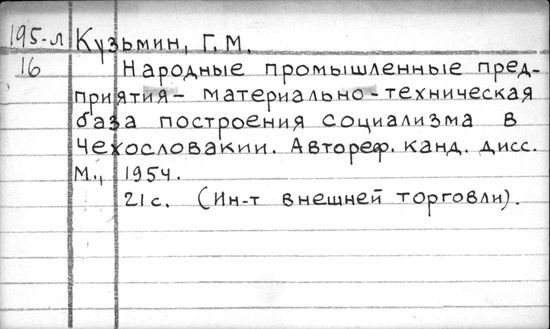 195-л Кузьмин, Г.М.
16 Народные промышленные пред-
приятия - материально-техническая
база построения социализма в
Чехословакии. Автореф. канд. дисс.
М., 1954.
21 с. (Ин-т внешней торговли).